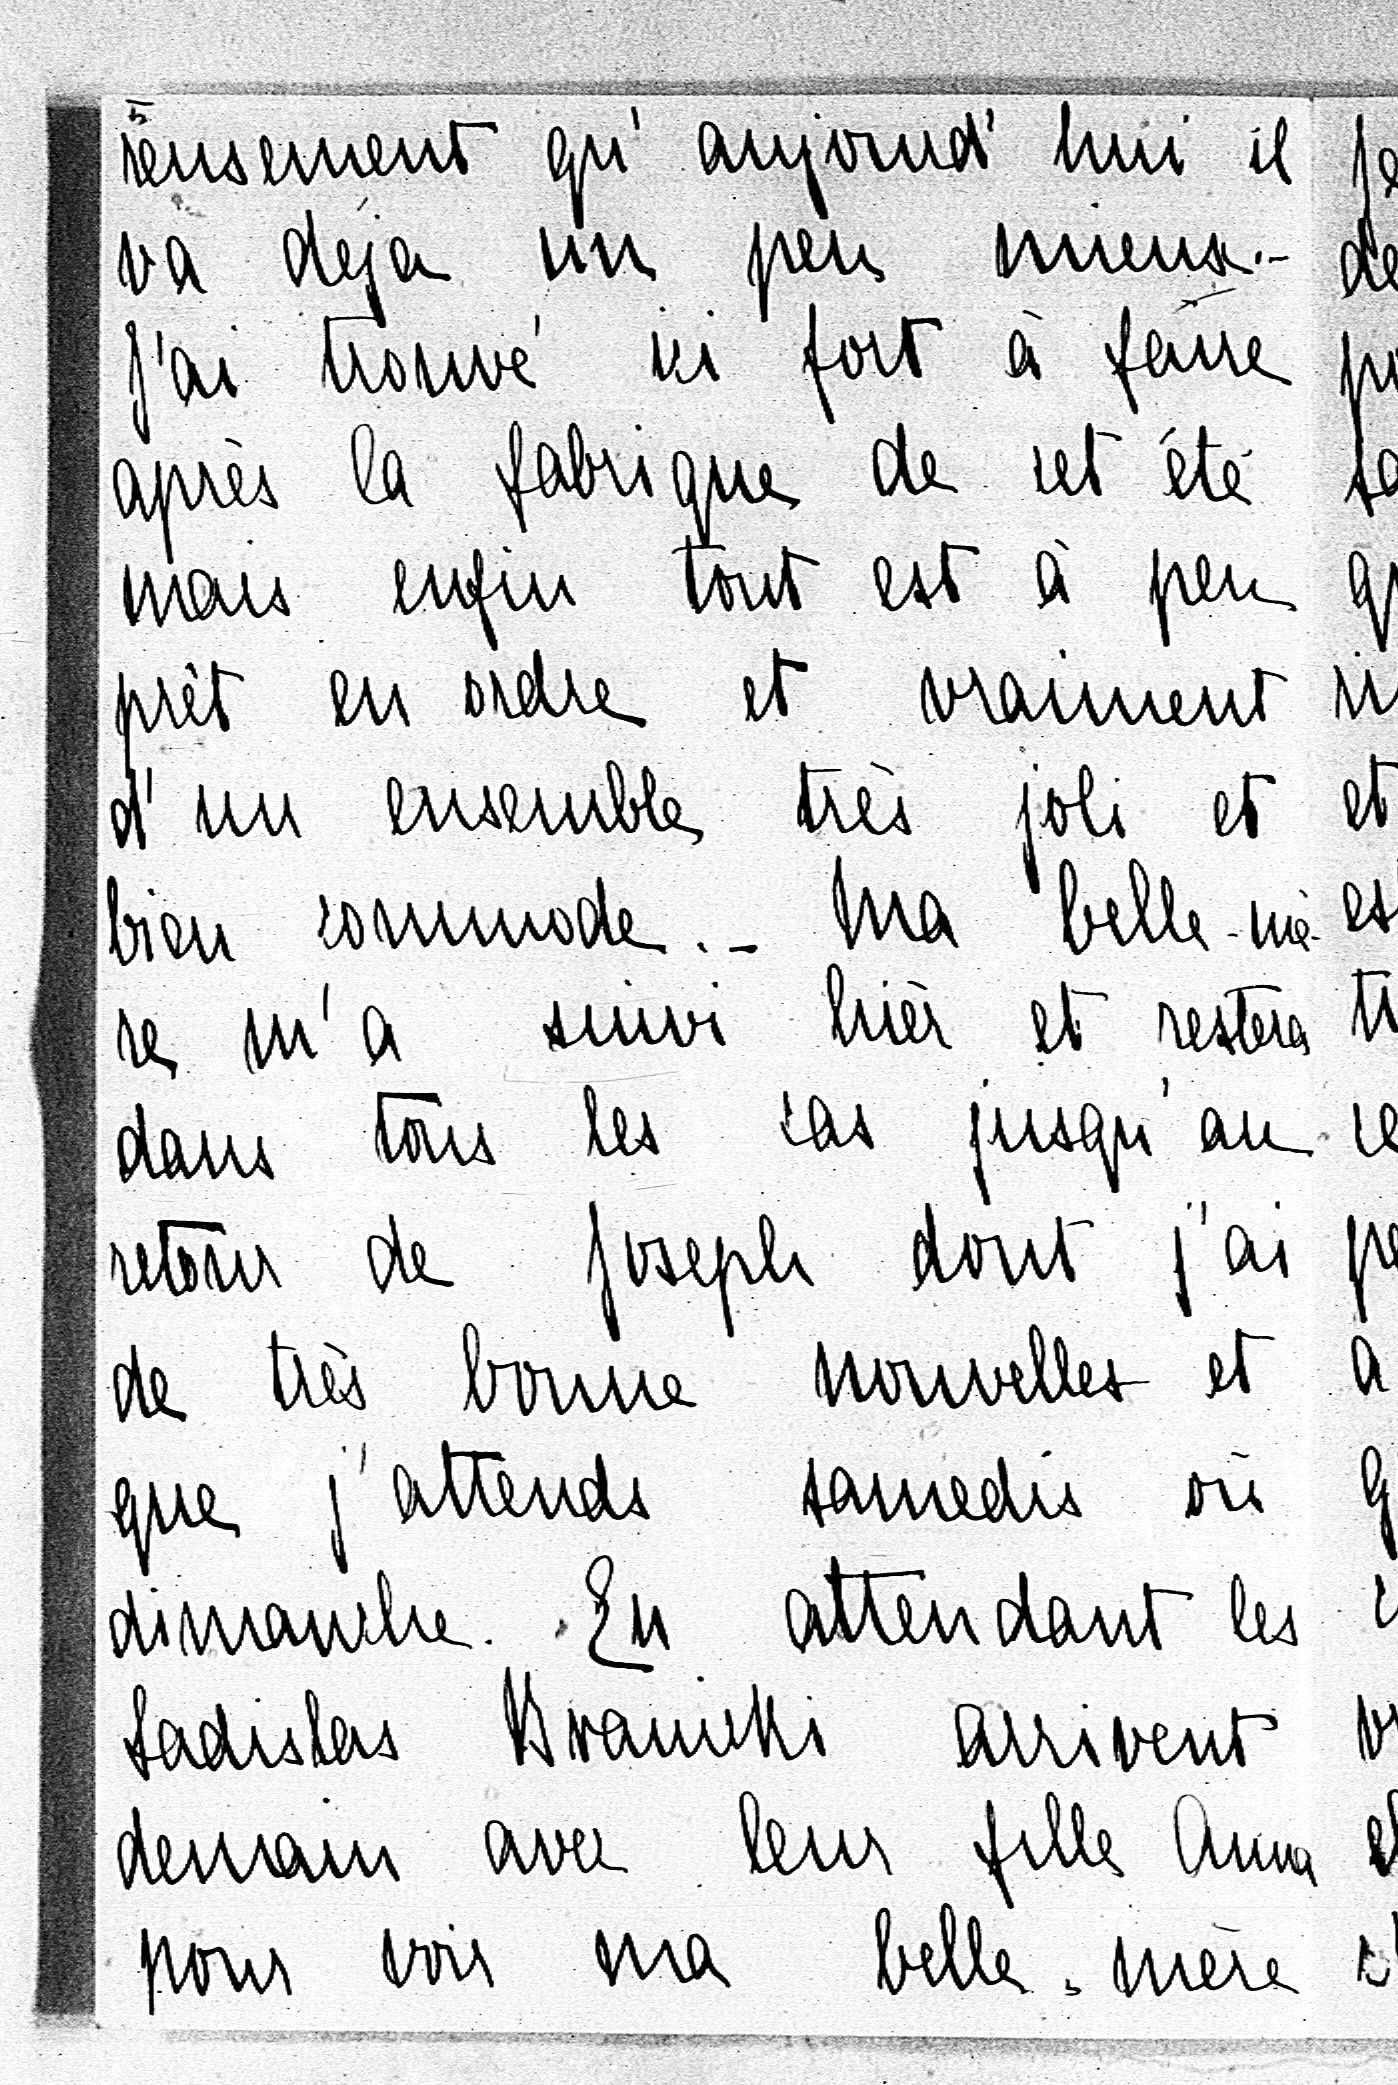 5
reusement qu'aujourd'hui il
va déja un peu mieux.-
J'ai trouvé ici fort à faire
après la fabrique de cet été
mais enfin tout est à peu
prêt en ordre et vraiment
d'un ensemble très joli et
bien commode.- Ma belle-mè-
re m'a suivi hièr et restera
dans tous les cas jusqu'au
retour de Joseph dont j'ai
de très bonne nouvelles et
que j'attends samedis où
dimanche. En attendant les
Ladislas Branicki arrivent
demain avec leur fille Anna
pour voir ma belle-mère